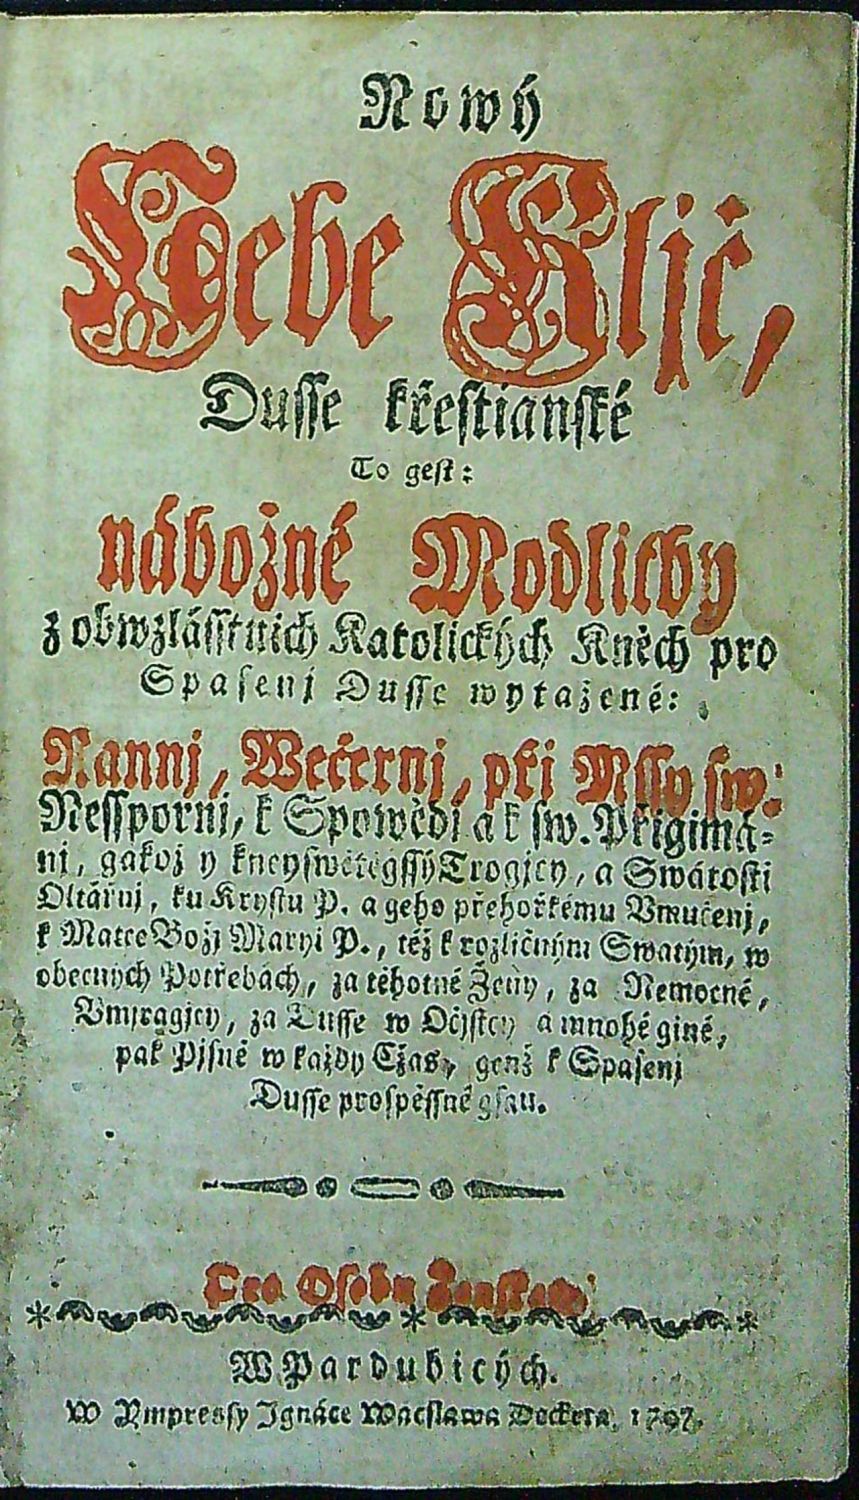 Nowý
Nebe Kljč,
Dusse křestianské
To gest:
nábožné Modlitby
z obwzlásstnich Katolických Kněch pro
Spasenj Dusse wytažené:
Rannj, Wečernj, při Mssy sw.
Nessporni, k Spowědi a k sw. Přigimá-
nj, gakož y k neyswětěgssý Trogjcy, a Swátosti
Oltářnj, ku Krystu P. a geho přehořkému Vmučenj,
k Matce Božj Maryi P., též k rozličným Swatým, w
obecných Potřebách, za těhotné Ženy, za Nemocné,
Vmjragjcy, za Dusse w Očjstcy a mnohé giné,
pak Pjsně w každy Cžas, genž k Spasenj
Dusse prospěssné gsau.
Pro Osobu Ženskau
W Pardubicých.
W Ympressy Ignáce Wácslawa Deckera, 1797.